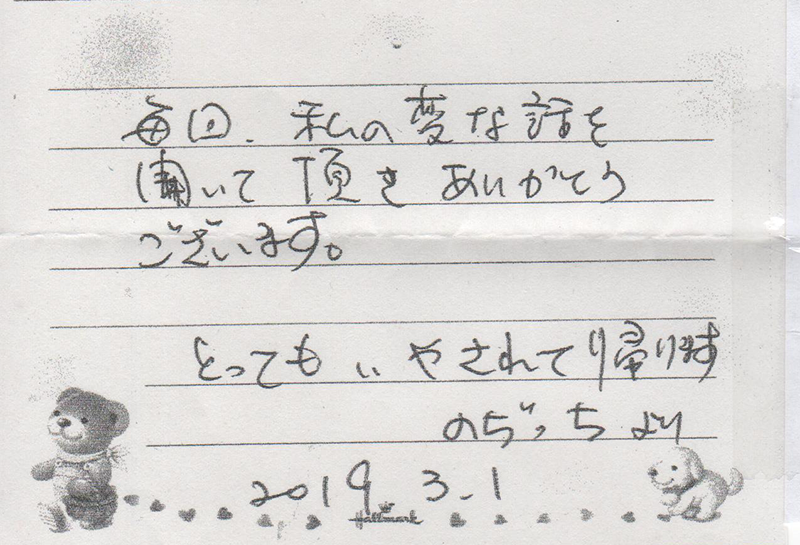 毎回、私の変な話を
聞いて頂きありがとう
ございます。
とってもいやされて帰ります
のぢっちより
2019 3.1
Hallmark